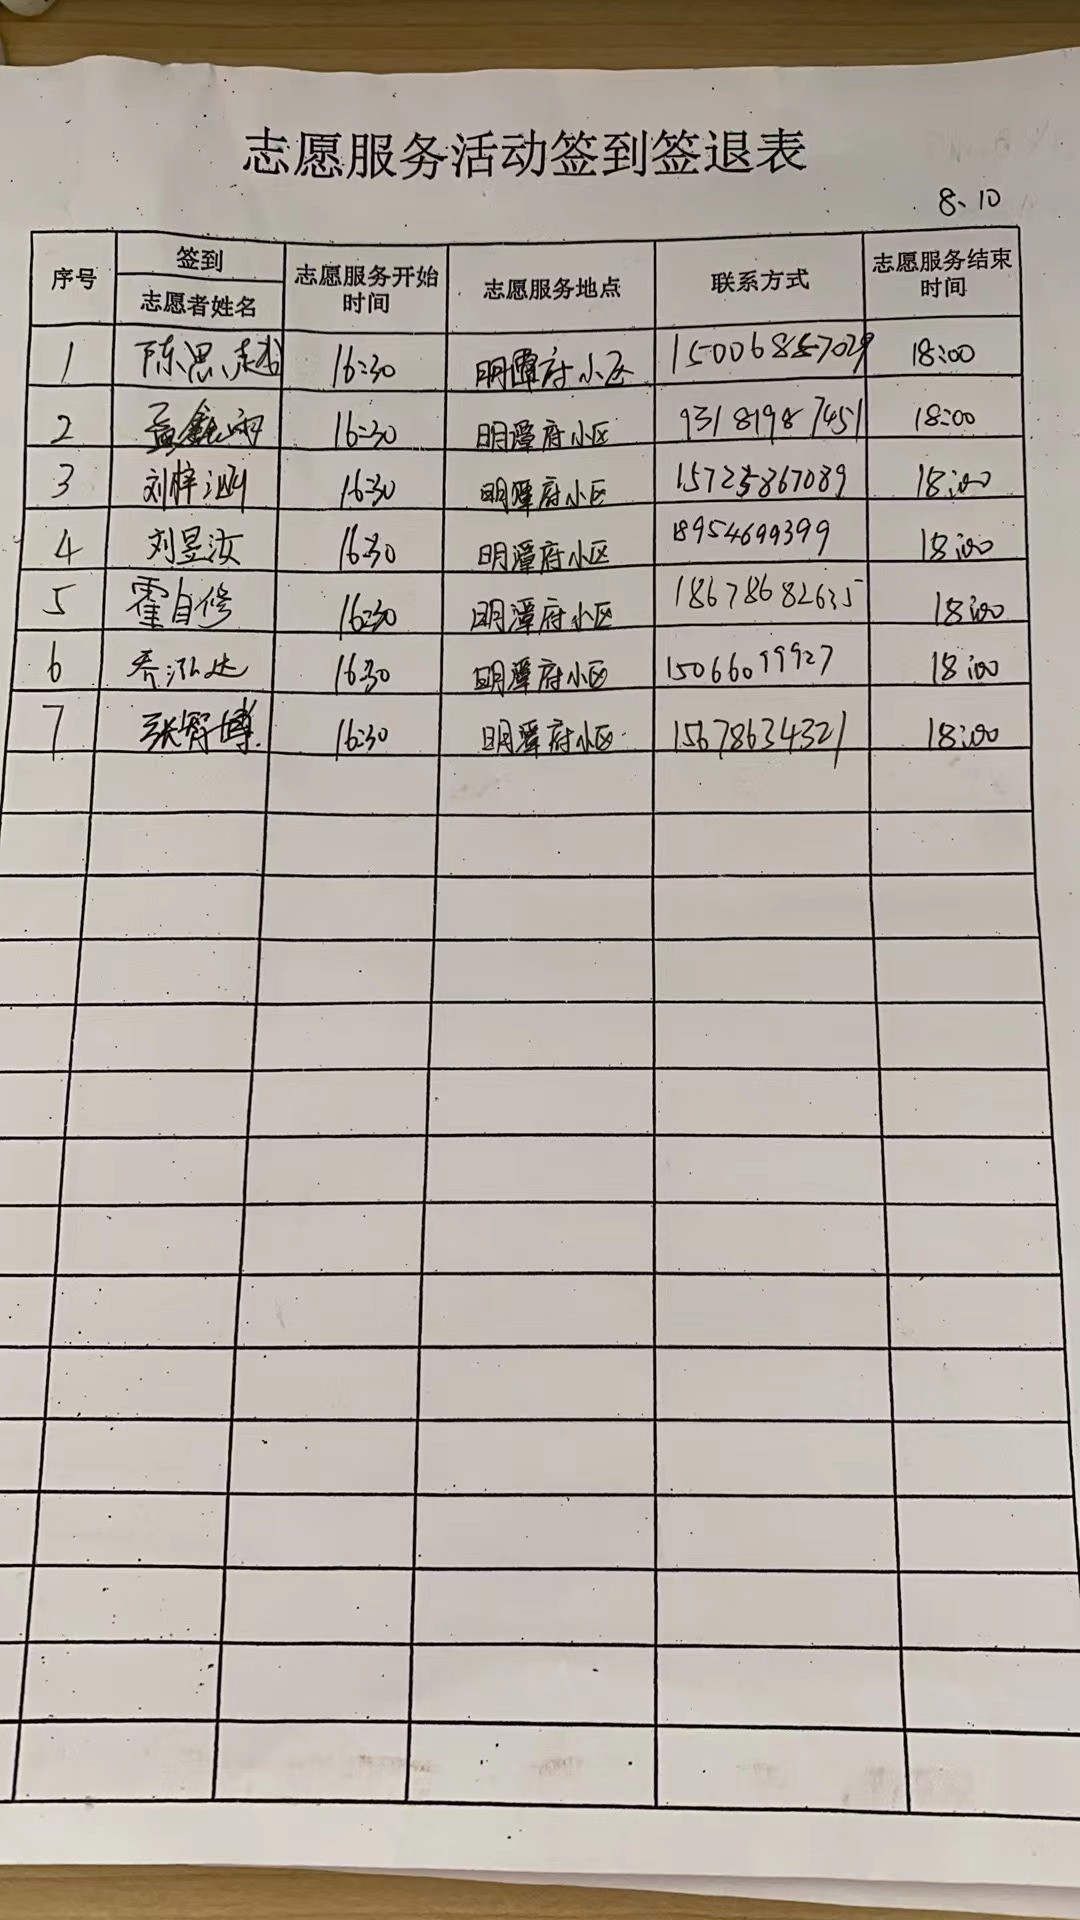 志愿服务活动签到签退表
8、10
序号 签到 志愿者姓名 志愿服务开始时间 志愿服务地点 联系方式 志愿服务结束时间
1 陈思 16:30 明潭府小区 15006857029 18:00
2 孟鑫雨 16:30 明潭府小区 93181987451 18:00
3 刘梓涵 16:30 明潭府小区 15725867089 18:00
4 刘昱汝 16:30 明潭府小区 18954699399 18:00
5 霍自修 16:30 明潭府小区 18678682635 18:00
6 乔泓达 16:30 明潭府小区 15066099927 18:00
7 张智博 16:30 明潭府小区 15678634321 18:00